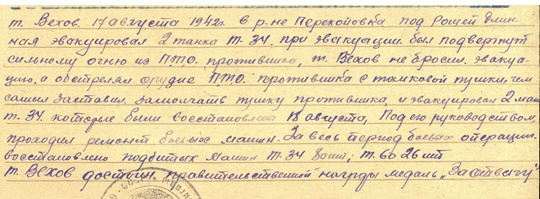 т. Вехов 17 августа 1942г. в р.не Перекоповка под Рощей Длин-
ная эвакуировал 2 танка Т-34. при эвакуации был подвергнут
сильному огню из ПТО. противника, т. Вехов не бросил эвакуа-
цию, а обстрелял орудие ПТО. противника с танковой пушки, чем
самым заставил замолчать пушку противника, и эвакуировал 2 машины
Т-34. которые были восстановлены 18 августа. Под его руководством
проходил ремонт боевых машин. За весь период боевых операций
восстановлено подбитых машин Т-34 8 шт; Т-60 26 шт
т. Вехов достоин правительственной награды медаль „За отвагу"